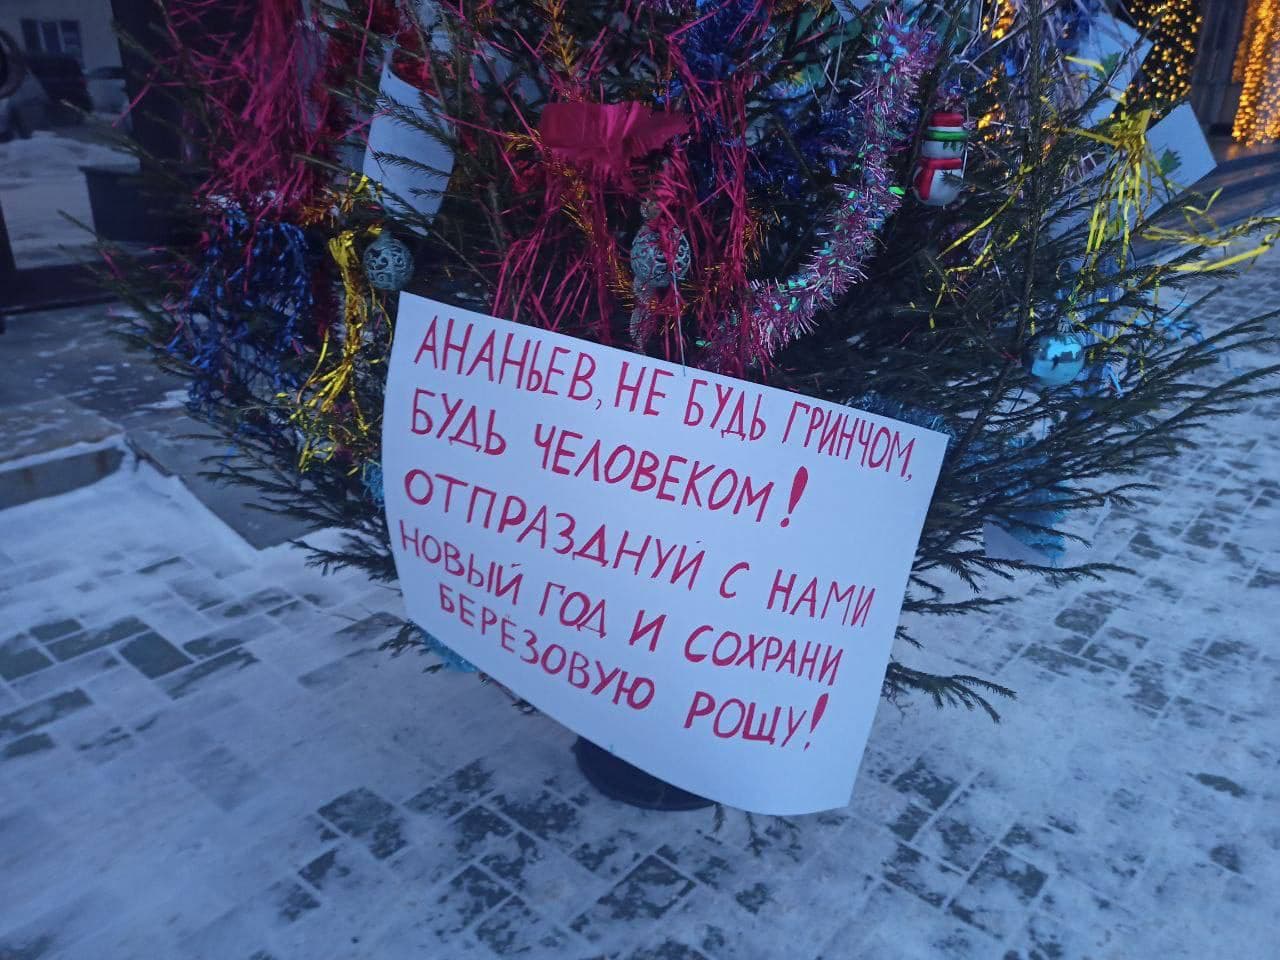 АНАНЬЕВ, НЕ БУДЬ ГРИНЧОМ,
БУДЬ ЧЕЛОВЕКОМ!
ОТПРАЗДНУЙ С НАМИ
НОВЫЙ ГОД И СОХРАНИ
БЕРЁЗОВУЮ РОЩУ!